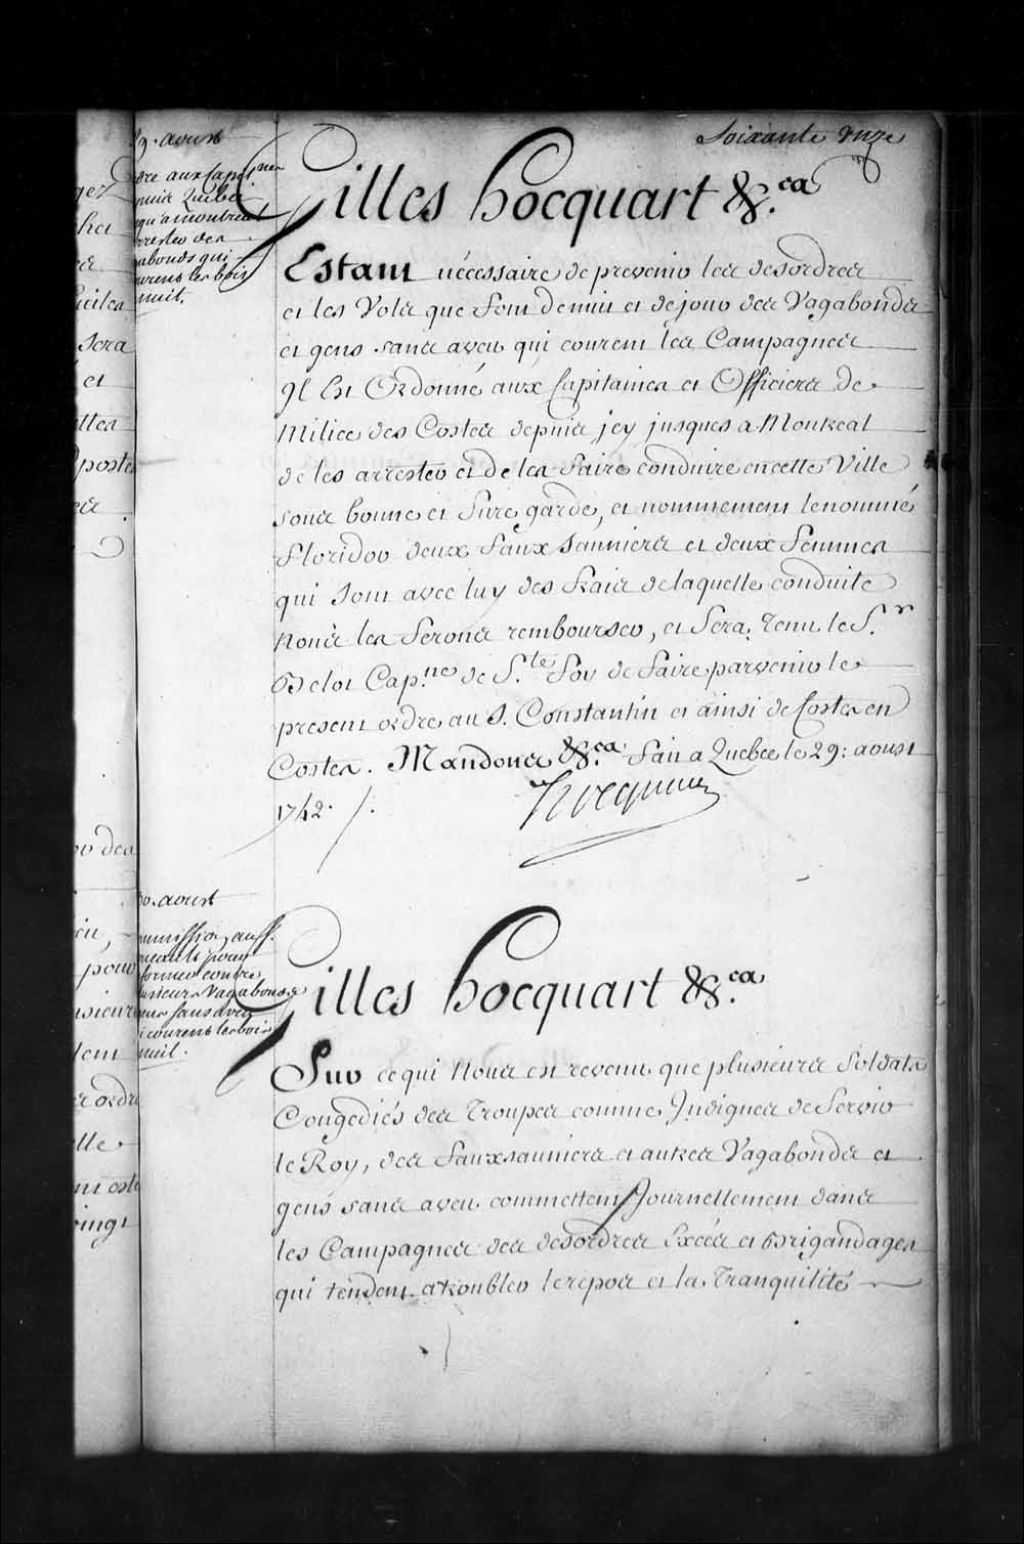 Soixante onze
29. aoust
ordre aux Cap.nes
depuis Quebec
jusqu'a montreal
d'arrester des
vagabonds qui
courent les bois
nuit.
Gilles hocquart &.ca
Estant nécessaire de prevenir les desordres
et les Vols que font de nuit et de jour des Vagabonds
et gens sans aveu qui courent les Campagnes
Il Est Ordonné aux Capitaines et Officiers de
Milice des Costes depuis jcy jusques a Montreal
de les arrester et de les faire conduire en cette Ville
sous bonne et sure garde, et nommement le nommé
Floridor deux faux sauniers et deux femmes
qui sont avec luy des fraix de laquelle conduite
Nous les ferons rembourser, et sera tenu le S.r
Belot Cap.ne de S.te Foy de faire parvenir le
present ordre au S. Constantin et ainsi de Costes en
Costes. Mandons &.ca fait a Quebec le 29: aoust
1742. /.
Hocquart
30. aoust
Commission au S.
pour
informer contre
plusieurs Vagabonds
gens sans aveu
qui courent les bois
nuit.
Gilles hocquart &.ca
Sur ce qui Nous est revenu que plusieurs Soldats
Congediés des Troupes comme Indignes de Servir
le Roy, des faux sauniers et autres Vagabonds et
gens sans aveu commettent Journellement dans
les Campagnes des desordres Excés et Brigandages
qui tendent a troubler le repos et la Tranquilité